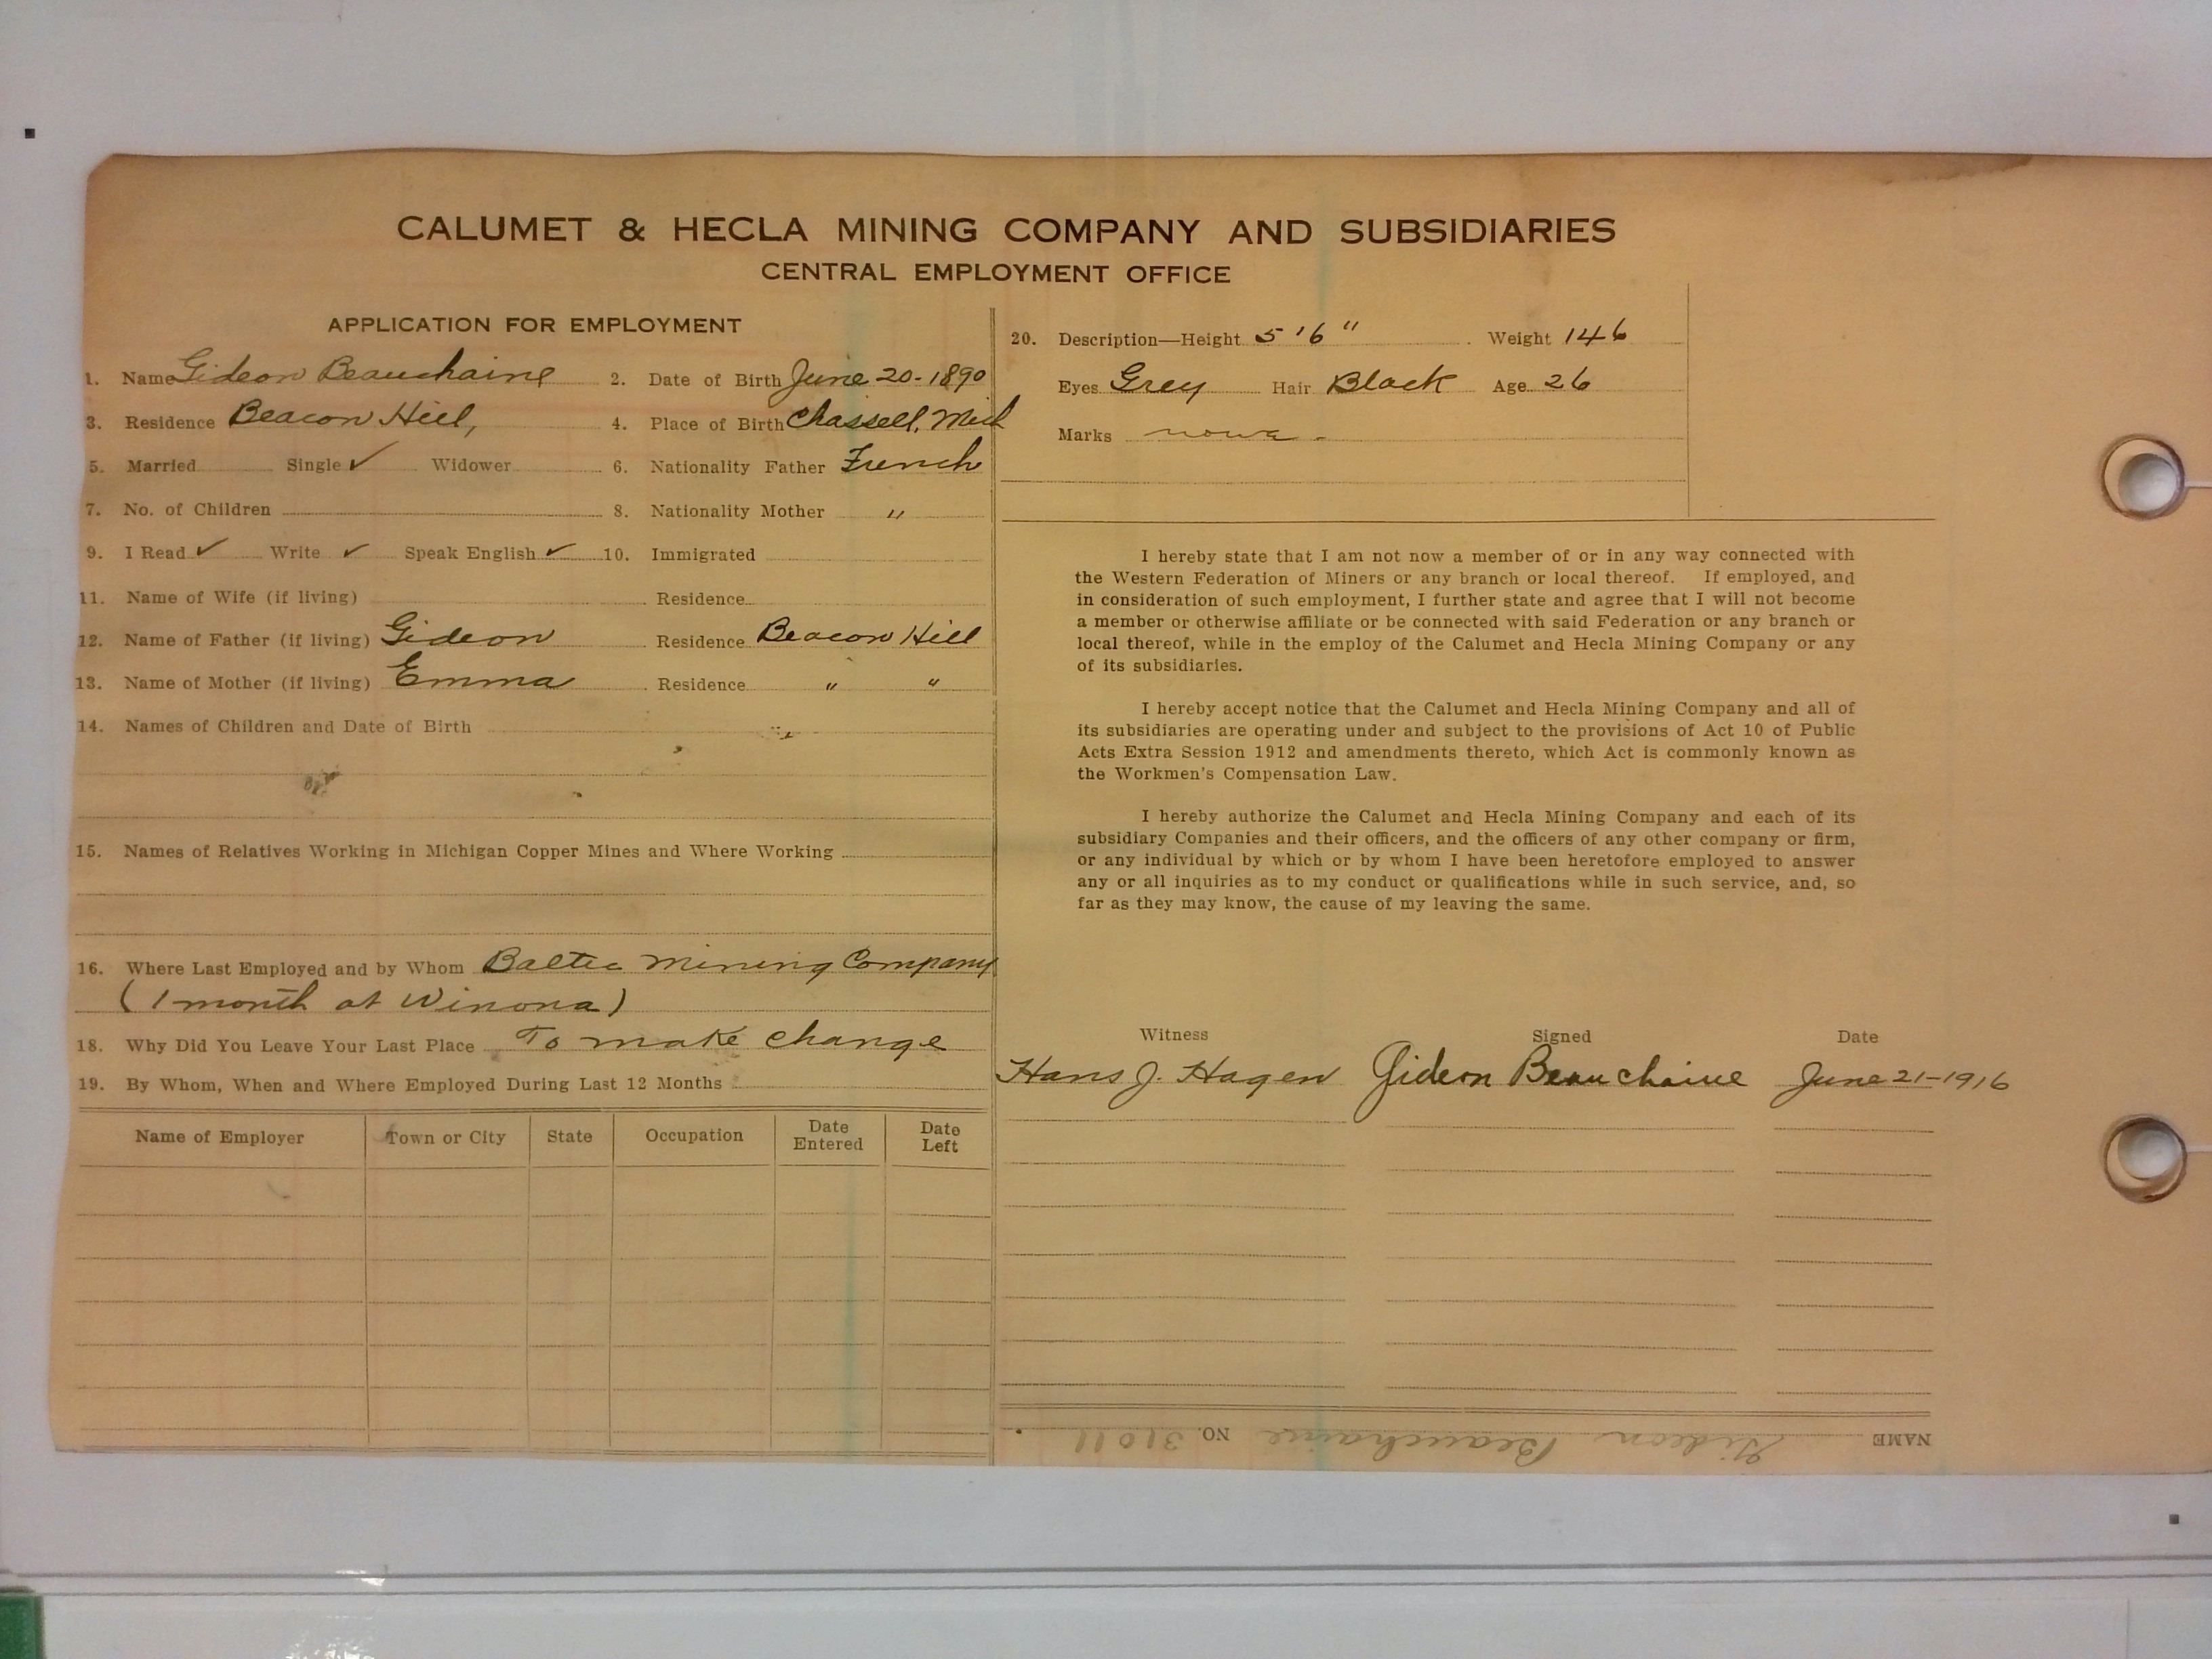 CALUMET & HECLA MINING COMPANY AND SUBSIDIARIES
CENTRAL EMPLOYMENT OFFICE
APPLICATION FOR EMPLOYMENT
1. Name Gideon Beauchaine 2. Date of Birth June 20-1890
3. Residence Beacon Hill, 4. Place of Birth Chassell, Mich
5. Married Single ✓ Widower 6. Nationality Father French
7. No. of Children 8. Nationality Mother "
9. I Read ✓ Write ✓ Speak English ✓ 10. Immigrated
11. Name of Wife (if living) Residence
12. Name of Father (if living) Gideon Residence Beacon Hill
13. Name of Mother (if living) Emma Residence " "
14. Names of Children and Date of Birth
15. Names of Relatives Working in Michigan Copper Mines and Where Working
16. Where Last Employed and by Whom Baltic Mining Company
(1 month at Winona)
18. Why Did You Leave Your Last Place To make change
19. By Whom, When and Where Employed During Last 12 Months
Name of Employer Town or City State Occupation Date Entered Date Left
20. Description—Height 5'6" Weight 146
Eyes Grey Hair Black Age 26
Marks none.
I hereby state that I am not now a member of or in any way connected with
the Western Federation of Miners or any branch or local thereof. If employed, and
in consideration of such employment, I further state and agree that I will not become
a member or otherwise affiliate or be connected with said Federation or any branch or
local thereof, while in the employ of the Calumet and Hecla Mining Company or any
of its subsidiaries.
I hereby accept notice that the Calumet and Hecla Mining Company and all of
its subsidiaries are operating under and subject to the provisions of Act 10 of Public
Acts Extra Session 1912 and amendments thereto, which Act is commonly known as
the Workmen's Compensation Law.
I hereby authorize the Calumet and Hecla Mining Company and each of its
subsidiary Companies and their officers, and the officers of any other company or firm,
or any individual by which or by whom I have been heretofore employed to answer
any or all inquiries as to my conduct or qualifications while in such service, and, so
far as they may know, the cause of my leaving the same.
Witness Signed Date
Hans J. Hagen Gideon Beauchaine June 21-1916
NAME Gideon Beauchaine NO. 31011